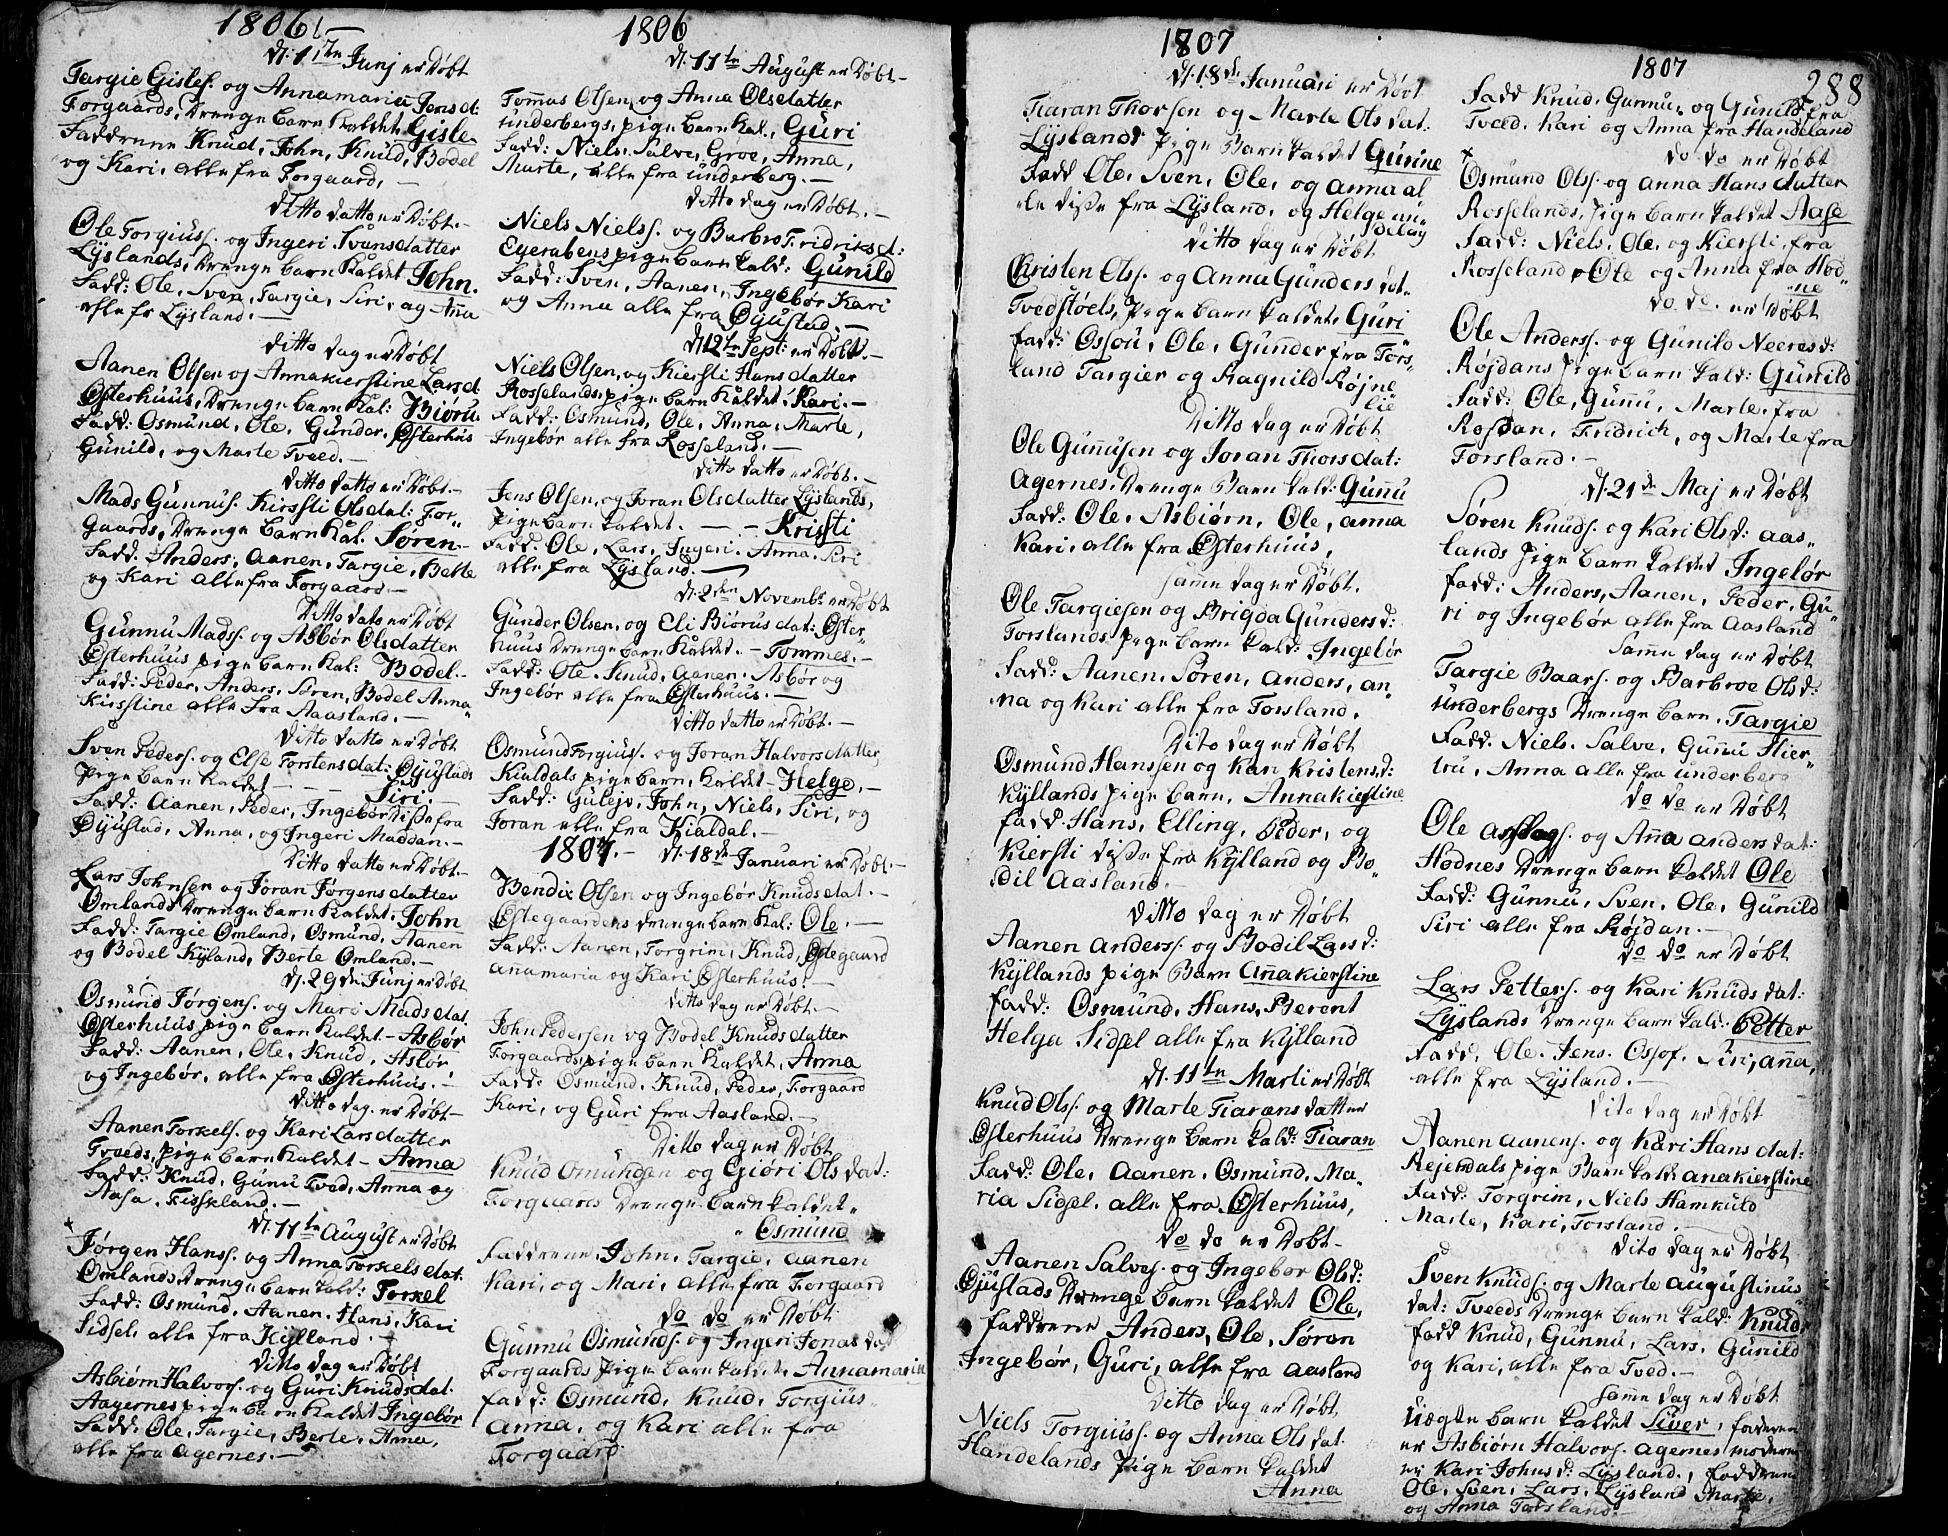 1806
d. 11te Junj er Døbt
Targie Gisles. og Annamaria Jonsd:
Forgaards, Drenge barn kaldet, Gisle
Faddrene Knud, John, Knud, Bodel
og Kari, alle fra Forgaard,
Ditto datto er Døbt.
Ole Torgiuss. og Ingeri Svansdatter
Lÿslands, Drenge barn kaldet John.
Fadd: Ole, Sven, Targie, Siri, ag Aña
alle fr Lÿsland.
ditto dag er Døbt
Aanen Olsen oj Annakierstine Larsd
Østerhuus, Drenge barn Kal: Biøru
Fadd: Osmund, Ole, Gunder, Østerhus
Gunild, og Marte Tveed.
ditto datto er Døbt.
Mads Gunnus. Kirssti Olsdat: For-
gaards, Drenge barn Kal. Søren
Fadd: Anders, Aanen, Targie, Bette
og Kari alle fra Forgaard
Ditto dato er Døbt
Gunnu Madss. og Asbør Olsdatter
Østerhuus pige barn kal: Bodel.
Fadd: Peder, Anders, Søren, Bodel Anna
Kirstine alle fra Aasland.
Ditto datto er Døbt
Sven Peders. og Else Torstensdat: Øÿustads
Pige barn kaldet — Siri.
Fadd: Aanen, Peder, Ingebør Disse fra
Øÿustad, Anna, og Ingeri Maddan.
Ditto datto er Døbt.
Lars Johnsen og Joran Jørgensdatter
Omlands Drenge barn kaldet, John
Fadd: Targie Omland, Osmund, Aanen
og Bodel Kÿland, Berte Omland.
d. 29de Junj er Døbt
Osmund Jørgens. og Mari Madsdat.
Østerhuus pige barn kaldet Asbør
Fadd: Aanen, Ole, Knud, Asbør
og Ingebør, alle fra Østerhuus.
Ditto dag er Døbt
Aanen Torkels. og Kari Larsdatter
Tveeds, pige barn kaldet Anna
Fadd: Knud, Gunu Tved, Anna og
Aasa, Fisskland.
d. 11te August er Døbt
Jørgen Hanss. og Anna Torkelsdat.
Omlands Drenge barn kald: Torkel
Fadd: Osmund, Aanen, Hans, Kari
Sidsel, alle fra Kÿlland.
Ditto dag er Døbt
Asbiørn Halvors. og Guri Knudsdat.
Aagernes pige barn kaldet Ingebør
Fadd: Ole, Targie, Berte, Anna,
alle fra Agernes.
1806
d. 11te August er Døbt
Tommas Olsen og Anna Olsdatter
Underbergs, pige barn kal. Guri
Fadd: Niels, Salve, Groe, Anna,
Marte, alle fra Underberg.
ditto dag er Døbt.
Niels Nielss. og Barbro Fridriksd:
Egerabens pige barn kald: Gunild
Fadd: Sven, Aanen, Ingebør Kari
og Anna alle fra Øÿustad.
d. 12te Sept: er Døbt.
Niels Olsen, og Kiersti Hansdatter
Rosselands, pige barn kaldet, Kari.
Fadd: Osmund, Ole, Anna, Marte,
Ingebør alle fra Rosseland.
ditto datto er Døbt.
Jens Olsen, og Joran Olsdatter Lÿslands,
Pige barn kaldet. — Kristi
Fadd: Ole, Lars, Ingeri, Anna, Siri
alle fra Lÿsland.
d. 2den Novemb. er Døbt
Gunder Olsen, og Eli Biørusdat: Øster-
huus Drenge barn kaldet. Tommes.
Fadd: Ole, Knud, Aanen, Asbør og
Ingebør alle fra Østerhuus.
Ditto datto er Døbt.
Osmund Torgiuss. og Joran Halvorsdatter
Kialdals pige barn, kaldet Helge,
Fadd: Gulejv, John, Niels, Siri, og
Joran alle fra Kialdal.
1807. d. 18de Januari er Døbt.
Bendix Olsen og Ingebør Knudsdat.
Østegaardens drenge barn kal: Ole.
Fadd: Aanen, Torgrim, Knud, Østegaard
Anamaria og Kari Østerhuus.
Ditto dag er Døbt.
John Pedersen og Bodel Knudsdatter
Forgaards pige barn kaldet, Anna
Fadd: Osmund, Knud, Peder, Forgaard
Kari, og Guri fra Aasland.
Ditto dag er Døbt
Knud Omundsen og Giøri Olsdat:
Forgaards Drenge barn kaldet
Osmund
Faddrene, John, Targie, Aanen
Kari, og Mari, alle fra Forgaard
do do er Døbt
Gunnu Osmunds. og Ingeri Jonasdat
Forgaards Pige barn kaldet, Annamaria
Fadd: Osmund, Knud, Torgius
Anna, og Kari alle fra
Forgaard
1807
d. 18de Januari er Døbt
Tiaran Thorsen og Marte Olsdat:
Lÿslands Pige Barn kaldet Gurine
Fadd Ole, Sven, Ole, og Anna al-
le disse fra Lÿsland, og Helge
ditto dag er Døbt
Kristen Olss. og Anna Gundersdat.
Tvedstøels, Pige barn kaldet, Guri
Fadd: Ossou, Ole, Gunder fra Fors-
land Targier og Ragnild Røjne
lie
Ditto dag er Døbt
Ole Guñusen og Joran Thorsdat:
Agernes, Drenge Barn kald: Guñu
Fadd: Ole, Asbiørn, Ole, Anna
Kari, alle fra Østerhuus,
samme dag er Døbt.
Ole Targiesen og Brigda Gundersd:
Forslands pige barn kald: Ingebør
Fadd: Aanen, Søren, Anders, An-
na og Kari alle fra Forsland.
Dito dag er Døbt
Osmund Hanssen og Kari Kristensd:
Kÿllands pige barn, Annakierstine
Fadd: Hans, Elling, Peder, og
Kiersti disse fra Kÿlland og Bo-
dil Aasland.
ditto dag er Døbt
Aanen Anderss. og Bodil Larsd:
Kÿllands pige Barn Añakierstine
Fadd: Osmund, Hans, Berent
Helga Sidsel alle fra Kÿlland
d. 11te Marti er Døbt
Knud Olss. og Marte Tiaransdatter
Østerhuus Drenge barn kald: Tiaran
Fadd: Ole, Aanen, Osmund, Ma-
ria Sidsel, alle fra Østerhuus,
do do er Døbt
Aanen Salves. og Ingebor Olsd:
Øÿustads Drenge barn kaldet Ole,
Faddrene Anders, Ole, Søran
Ingebør, Guri, alle fra Aasland
Ditto dag er Døbt
Niels Torgiuss. og Anna Olsdat.
Handelands Pige barn kaldet
Anna
1807
288
Fadd Knud, Gunnu, og Gunild fra
Tveed, Kari og Anna fra Handeland
do do er Døbt
Osmund Olss. og Anna Hansdatter
Rosselands, Pige barn kaldet Aase
Fadd: Niels, Ole, og Kiersti, fra
Rosseland Ole og Anna fra Hod-
ne
do do. er Døbt
Ole Anderss. og Gunild Neeresd:
Røjdans Pige barn kald: Gunild
Fadd: Ole, Guñu, Marte, fra
Rojdan, Fridrich, og Marte fra
Forsland.
d. 21de Maj er Døbt
Søren Knuds. og Kari Olsd: Aas-
lands Pige barn kaldet Ingebør
Fadd: Anders, Aanen, Peder, Gu-
ri og Ingebør alle fra Aasland
Samme dag er Døbt
Targie Baars. og Barbroe Olsd:
Underbergs Drenge barn, Targie
Fadd: Niels, Salve, Guñu Hier-
tru, Anna alle fra Underberg
do do er Døbt
Ole Aslags. og Aña Andersdat:
Hodnes Drenge barn kaldet Ole
Fadd: Gunnu, Sven, Ole, Gunild
Siri alle fra Røjdan.
do do er Døbt
Lars Petters. og Kari Knudsdat:
Lÿslands Drenge barn kald: Petter
Fadd, Ole, Jens, Ossof, Siri, Aña,
alle fra Lÿsland.
Dito dag er Døbt
Aanen Aanens. og Kari Hansdat:
Rejerdals pige Barn kald: Anakierstine
Fadd: Torgrim, Niels Hamkuld
Marte, Kari, Forsland.
Dito dag er Døbt
Sven Knuds. og Marte Augustinus
dat: Tveeds Drenge barn kald: Knud,
Fadd Knud, Gunnu, Lars, Gunild
og Kari, alle fra Tved.
Samme dag er Døbt
Uægte barn kaldet Siver, faderen
er Asbiørn Halvors. Agernes moderen
er Kari Johnsd: Lÿsland, Faddrene
Ole, Sven, Lars, Lÿsland Marte,
og Anna Forsland.